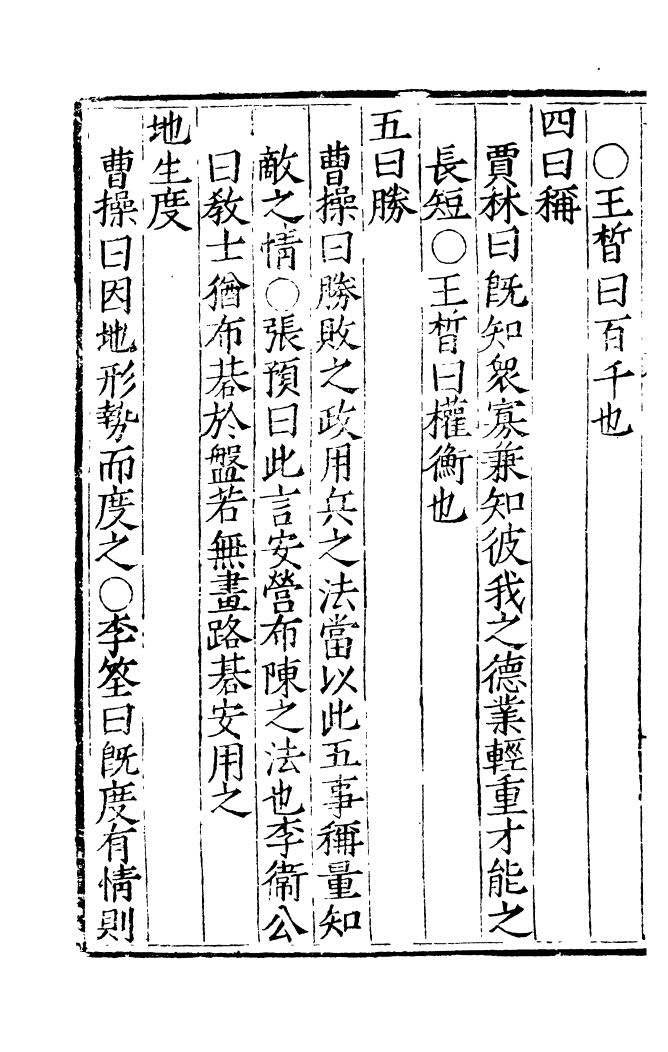 ○王晳曰百千也
四曰稱
賈林曰旣知衆寡兼知彼我之德業輕重才能之
長短○王晳曰權衡也
五曰勝
曹操曰勝敗之政用兵之法當以此五事稱量知
敵之情○張預曰此言安營布陳之法也李衛公
曰敎士猶布碁於盤若無畫路碁安用之
地生度
曹操曰因地形勢而度之○李筌曰旣度有情則